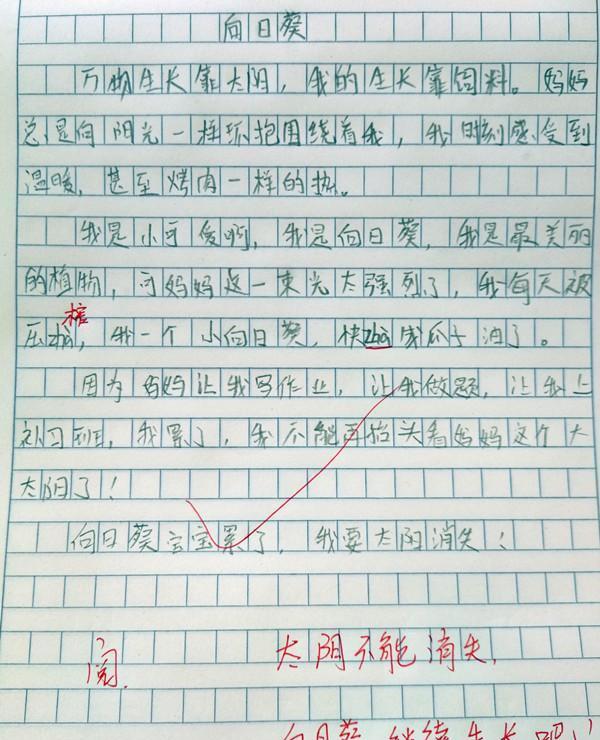 向日葵
万物生长靠太阳，我的生长靠饲料。妈妈
总是向阳光一样环抱围绕着我，我时刻感受到
温暖，甚至烤肉一样的热。
我是小可爱啊，我是向日葵，我是最美丽
的植物，可妈妈这一束光太强烈了，我每天被
榨
压zhà，我一个小向日葵，快zhà成瓜子油了。
因为妈妈让我写作业，让我做题，让我上
补习班，我累了，我不能再抬头看妈妈这个大
太阳了！
向日葵宝宝累了，我要太阳消失！
阅. 太阳不能消失，
向日葵继续生长吧！